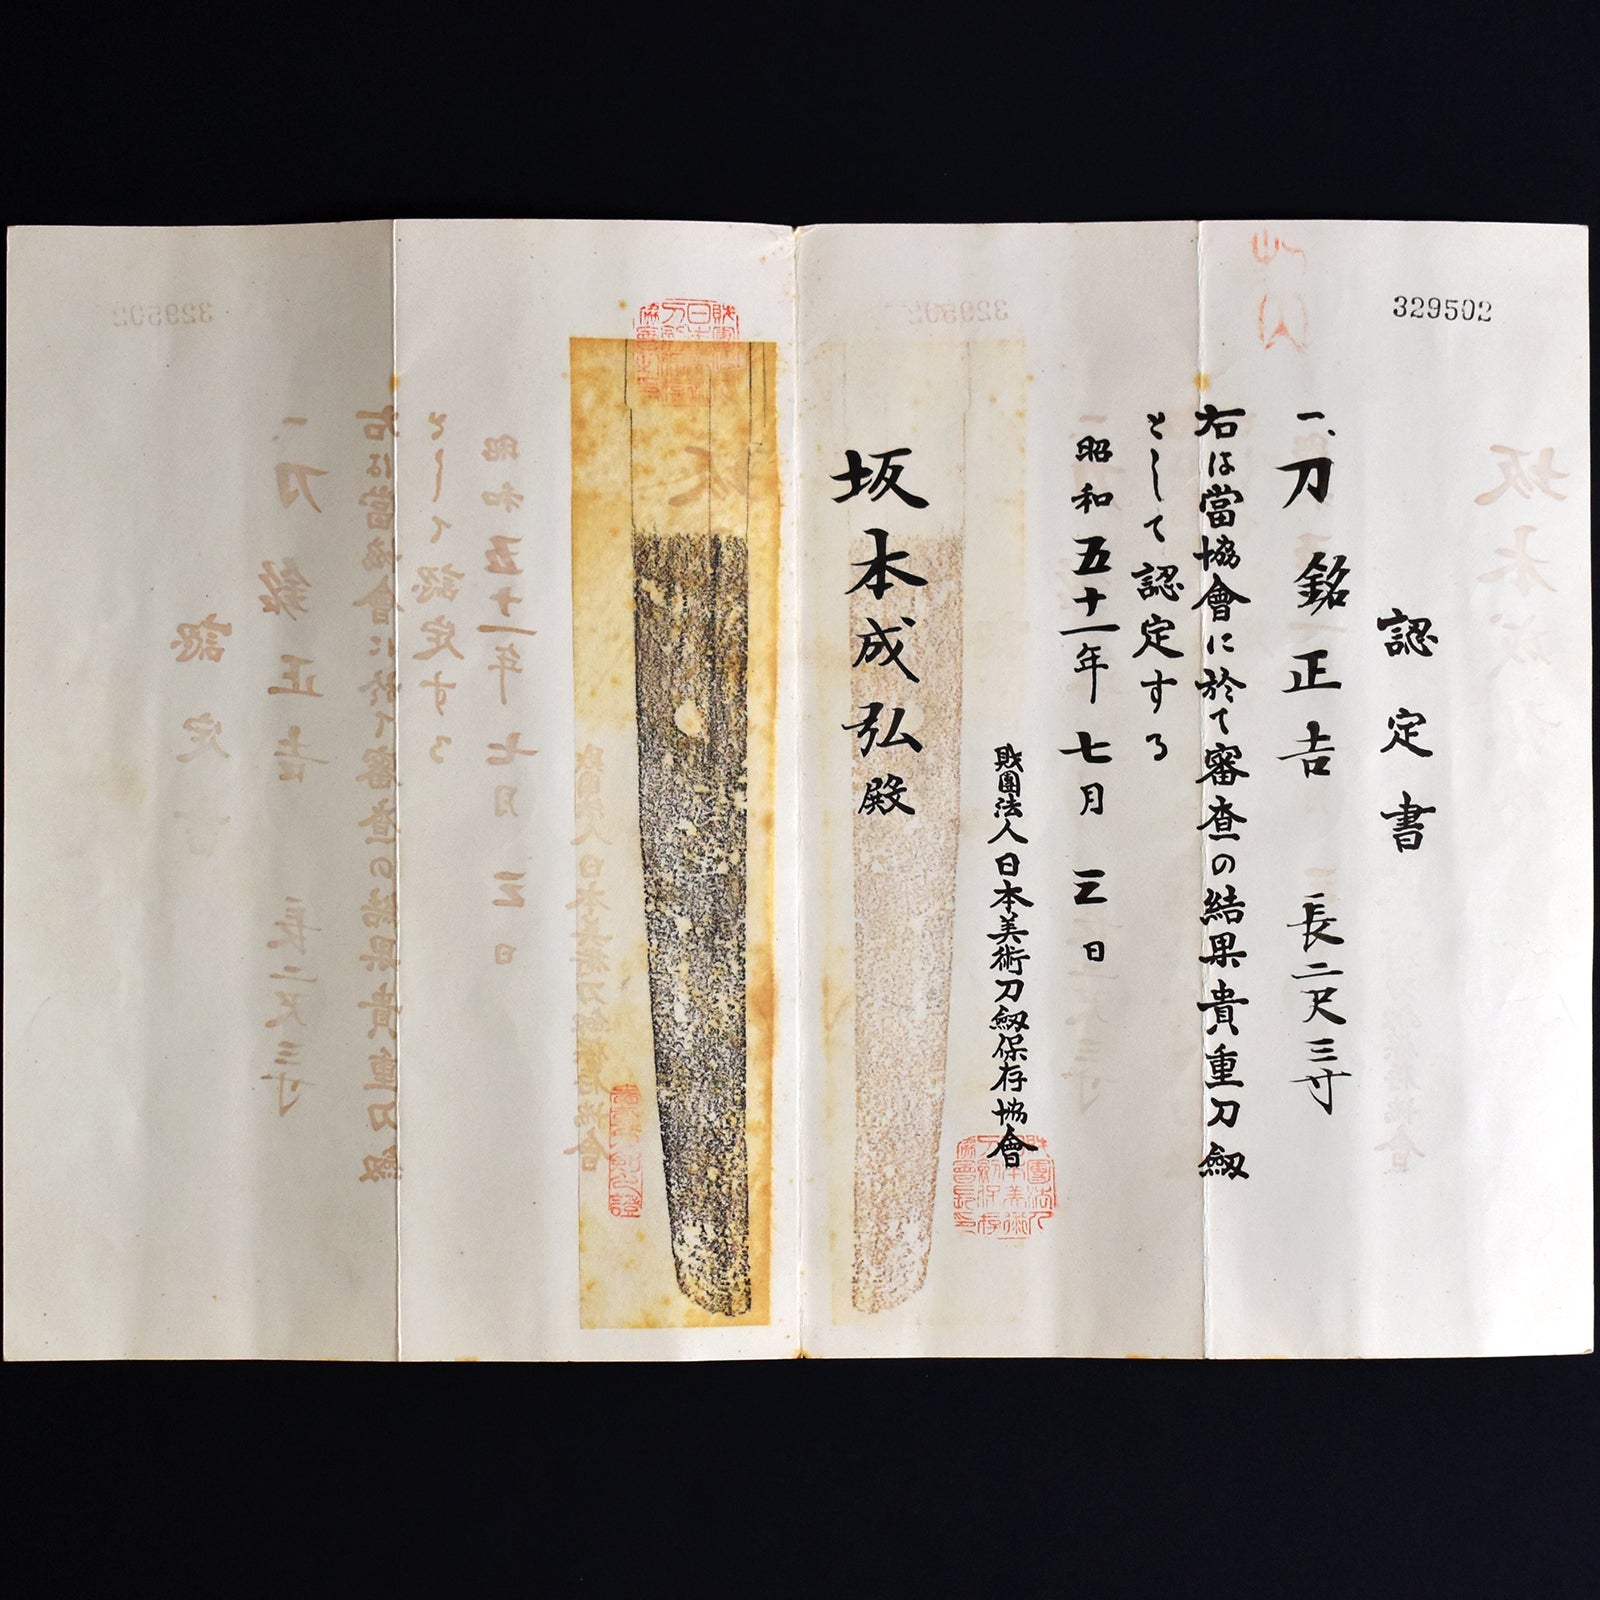 329502
認定書
一、刀 銘 正吉 長二尺三寸
右は當協會に於て審査の結果貴重刀劔
として認定する
昭和五十一年七月三日
財團法人日本美術刀劔保存協會
坂本成弘殿